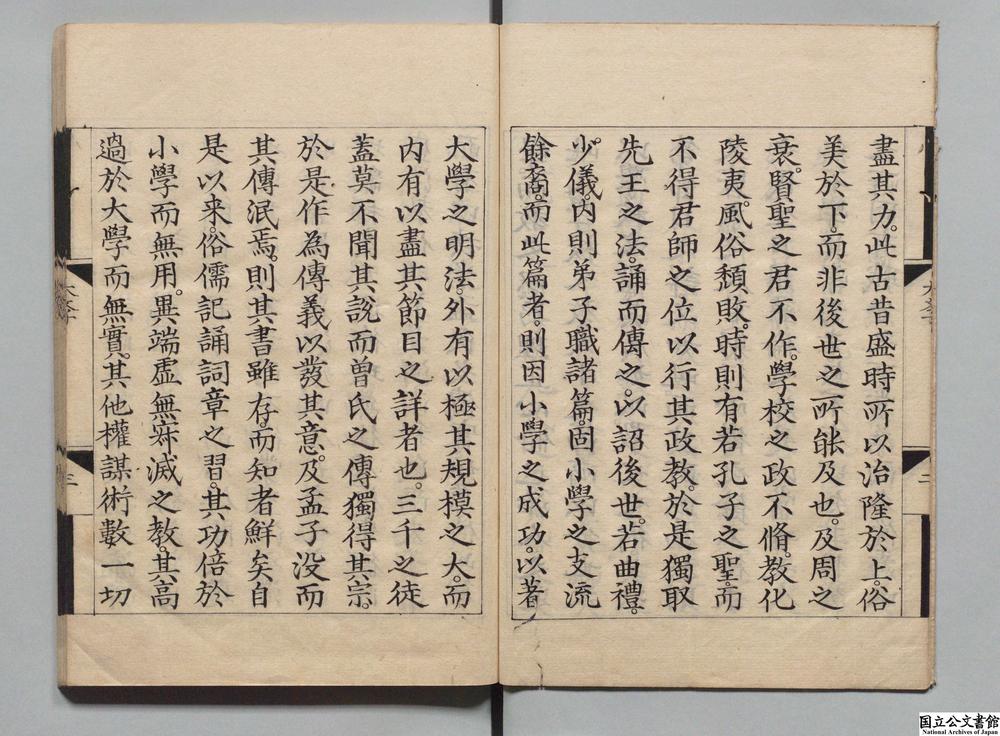 盡其力。此古昔盛時所以治隆於上。俗
美於下。而非後世之所能及也。及周之
衰。賢聖之君不作。學校之政不脩。教化
陵夷。風俗頹敗。時則有若孔子之聖。而
不得君師之位以行其政教。於是獨取
先王之法。誦而傳之。以詔後世。若曲禮。
少儀。內則弟子職諸篇。固小學之支流
餘裔。而此篇者。則因小學之成功。以著
大學之明法。外有以極其規模之大。而
內有以盡其節目之詳者也。三千之徒
蓋莫不聞其說而曾氏之傳獨得其宗。
於是作為傳義以發其意。及孟子没而
其傳泯焉。則其書雖存。而知者鮮矣自
是以来。俗儒記誦詞章之習。其功倍於
小學而無用。異端虛無寂滅之教。其高
過於大學而無實。其他權謀術數一切
三
国立公文書館
National Archives of Japan